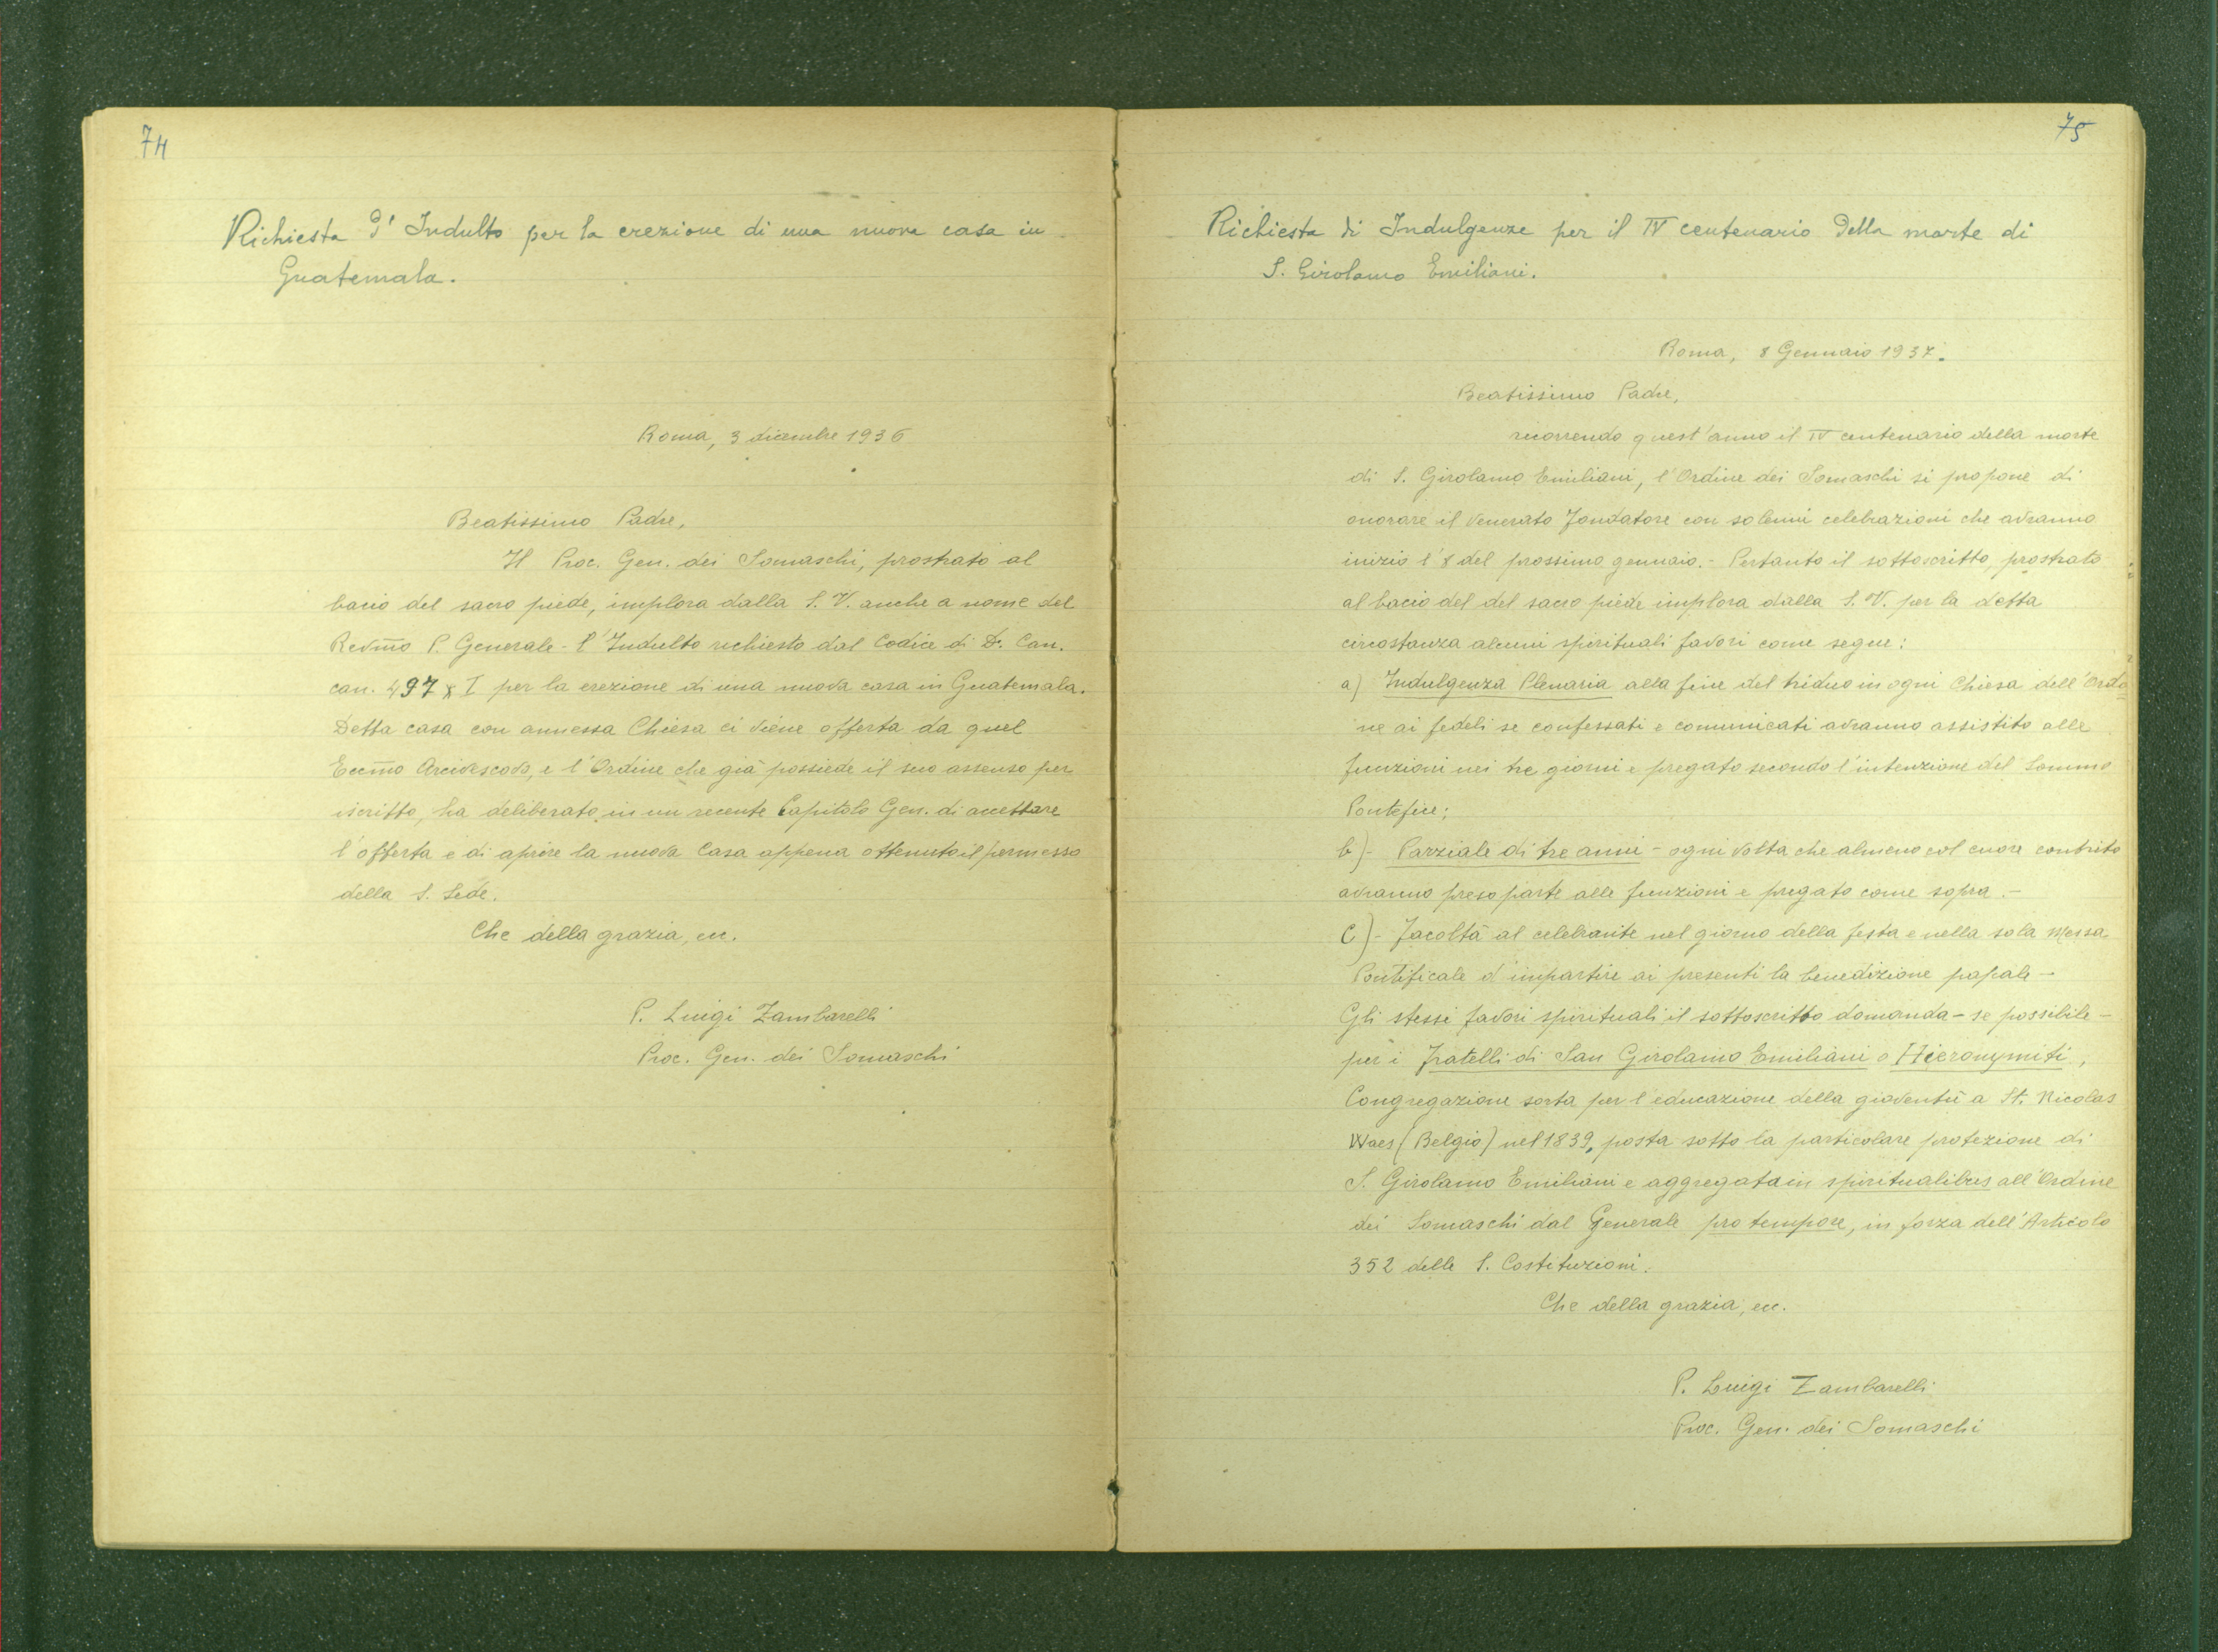 74
Richiesta d'Indulto per la erezione di una nuova casa in
Guatemala.
Roma, 3 dicembre 1936
Beatissimo Padre,
Il Proc. Gen. dei Somaschi, prostrato al
bacio del sacro piede, implora dalla S. V. anche a nome del
Revm̃o P. Generale - l'Indulto richiesto dal Codice di D. Can.
can. 497 § I per la erezione di una nuova casa in Guatemala.
Detta casa con annessa Chiesa ci viene offerta da quel
Eccm̃o Arcivescovo, e l'Ordine che già possiede il suo assenso per
iscritto, ha deliberato in un recente Capitolo Gen. di accettare
l'offerta e di aprire la nuova Casa appena ottenuto il permesso
della S. Sede.
Che della grazia, ecc.
P. Luigi Zambarelli
Proc. Gen. dei Somaschi
75
Richiesta di Indulgenze per il IV centenario della morte di
S. Girolamo Emiliani.
Roma, 8 Gennaio 1937.
Beatissimo Padre,
ricorrendo quest'anno il IV centenario della morte
di S. Girolamo Emiliani, l'Ordine dei Somaschi si propone di
onorare il venerato Fondatore con solenni celebrazioni che avranno
inizio l'8 del prossimo gennaio. - Pertanto il sottoscritto, prostrato
al bacio del del sacro piede implora dalla S. V. per la detta
circostanza alcuni spirituali favori come segue:
a) Indulgenza Plenaria alla fine del triduo in ogni Chiesa dell'Ordi
ne ai fedeli se confessati e comunicati avranno assistito alle
funzioni nei tre giorni e pregato secondo l'intenzione del Sommo
Pontefice;
b) - Parziale di tre anni - ogni volta che almeno col cuore contrito
avranno preso parte alle funzioni e pregato come sopra. -
c) - Facoltà al celebrante nel giorno della festa e nella sola Messa
Pontificale d'impartire ai presenti la benedizione papale -
Gli stessi favori spirituali il sottoscritto domanda - se possibile -
per i Fratelli di San Girolamo Emiliani o Hieronymiti,
Congregazione sorta per l'educazione della gioventù a St. Nicolas
Waes (Belgio) nel 1839, posta sotto la particolare protezione di
S. Girolamo Emiliani e aggregata in spiritualibus all'Ordine
dei Somaschi dal Generale pro tempore, in forza dell'Articolo
352 delle S. Costituzioni.
Che della grazia, ecc.
P. Luigi Zambarelli
Proc. Gen. dei Somaschi